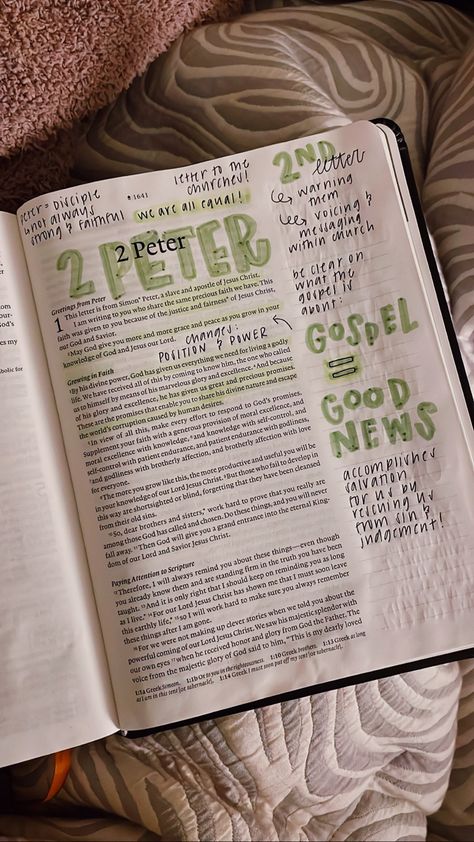 Peter = Disciple
↳ not always
strong & faithful
#1641
letter to the
churches!
we are all equal!
2 PETER
2 Peter
Greetings from Peter
1 This letter is from Simon* Peter, a slave and apostle of Jesus Christ.
I am writing to you who share the same precious faith we have. This
faith was given to you because of the justice and fairness* of Jesus Christ,
our God and Savior.
2 May God give you more and more grace and peace as you grow in your
knowledge of God and Jesus our Lord.
changes:
position & power
Growing in Faith
3 By his divine power, God has given us everything we need for living a godly
life. We have received all of this by coming to know him, the one who called
us to himself by means of his marvelous glory and excellence. 4 And because
of his glory and excellence, he has given us great and precious promises.
These are the promises that enable you to share his divine nature and escape
the world's corruption caused by human desires.
5 In view of all this, make every effort to respond to God's promises.
Supplement your faith with a generous provision of moral excellence, and
moral excellence with knowledge, 6 and knowledge with self-control, and
self-control with patient endurance, and patient endurance with godliness,
7 and godliness with brotherly affection, and brotherly affection with love
for everyone.
8 The more you grow like this, the more productive and useful you will be
in your knowledge of our Lord Jesus Christ. 9 But those who fail to develop in
this way are shortsighted or blind, forgetting that they have been cleansed
from their old sins.
10 So, dear brothers and sisters,* work hard to prove that you really are
among those God has called and chosen. Do these things, and you will never
fall away. 11 Then God will give you a grand entrance into the eternal King-
dom of our Lord and Savior Jesus Christ.
Paying Attention to Scripture
12 Therefore, I will always remind you about these things—even though
you already know them and are standing firm in the truth you have been
taught. 13 And it is only right that I should keep on reminding you as long
as I live.* 14 For our Lord Jesus Christ has shown me that I must soon leave
this earthly life,* 15 so I will work hard to make sure you always remember
these things after I am gone.
16 For we were not making up clever stories when we told you about the
powerful coming of our Lord Jesus Christ. We saw his majestic splendor with
our own eyes 17 when he received honor and glory from God the Father. The
voice from the majestic glory of God said to him, "This is my dearly loved
1:1a Greek Simeon. 1:1b Or to you in the righteousness. 1:10 Greek brothers. 1:13 Greek as long
as I am in this tent [or tabernacle]. 1:14 Greek I must soon put off my tent [or tabernacle].
2ND letter
↳ warning
them
↳ voicing &
messaging
within church
be clear on
what the
gospel is
about:
GOSPEL
=
GOOD
NEWS
accomplished
salvation
for us by
rescuing us
from sin &
judgement!